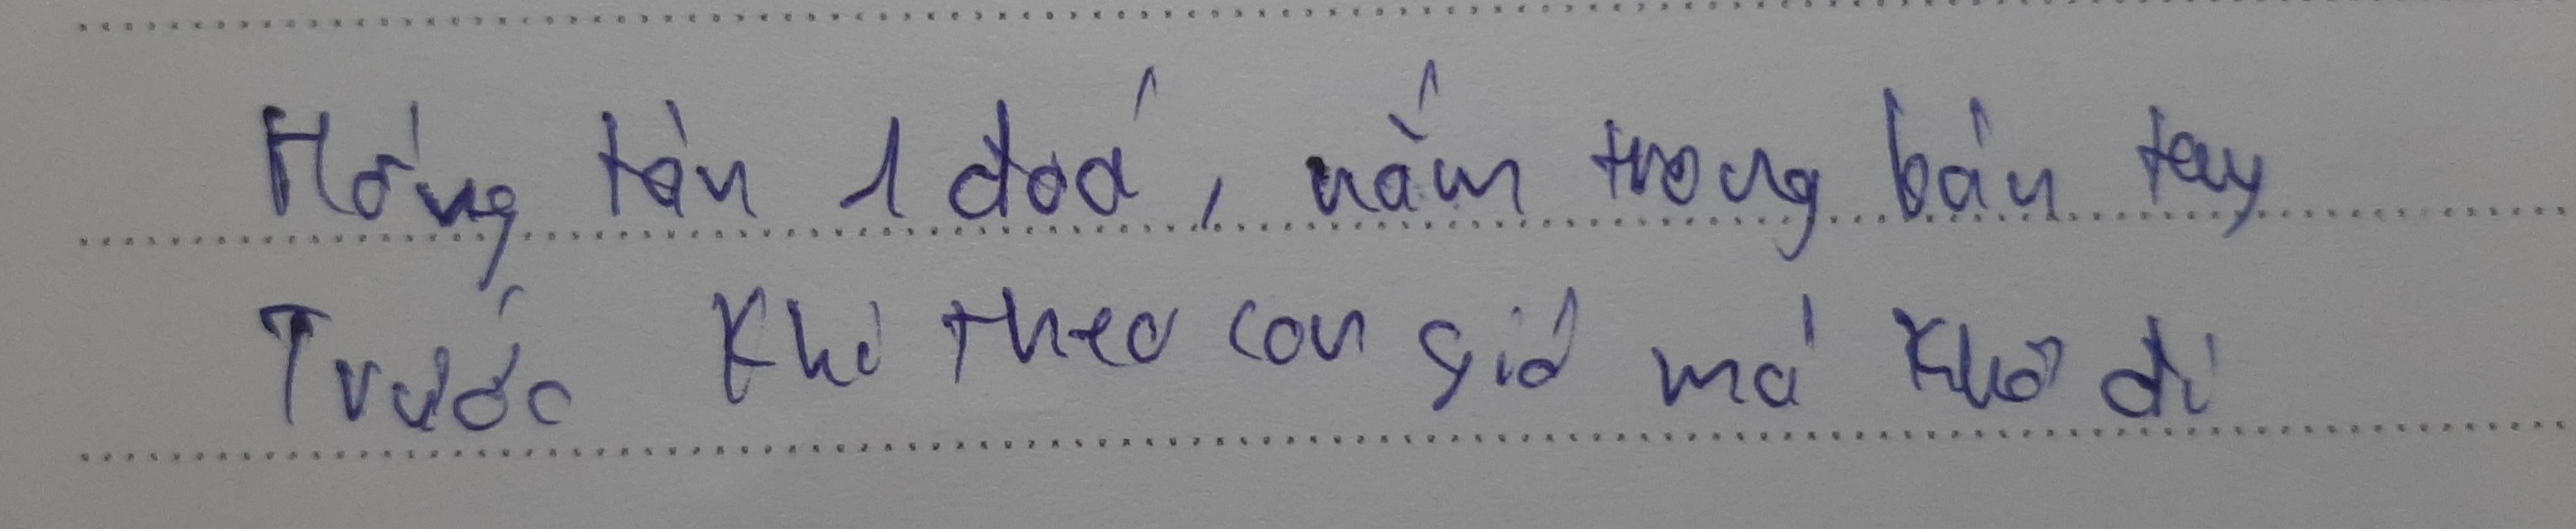 Hồng tàn 1 đoá, nằm trong bàn tay
Trước khi theo con gió mà khô đi